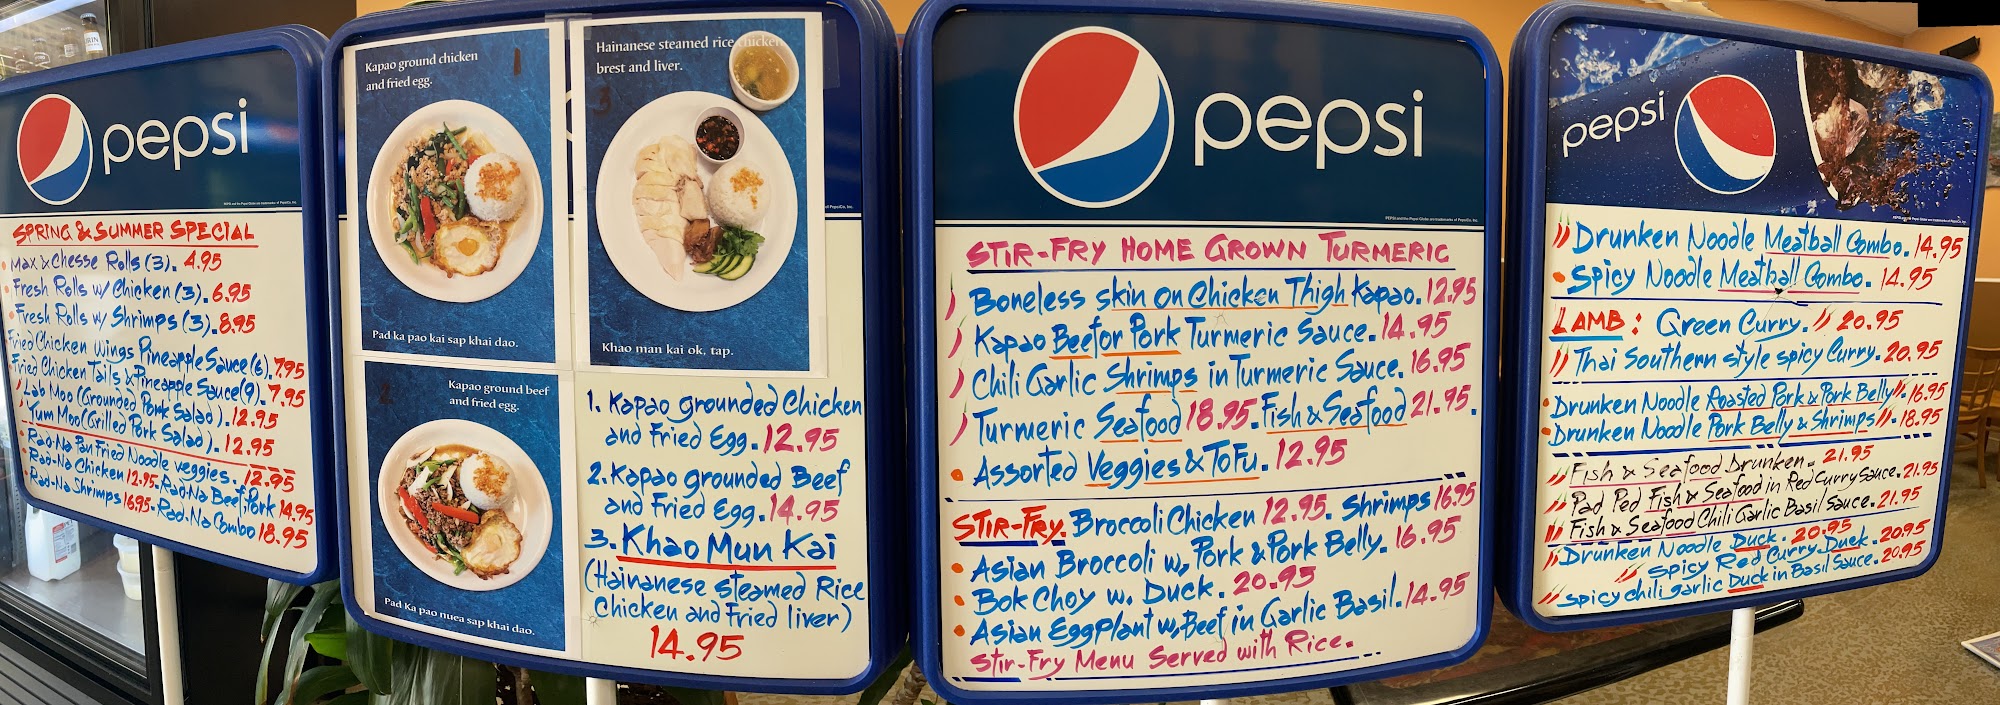 pepsi
SPRING & SUMMER SPECIAL
Max & Chesse Rolls (3). 4.95
Fresh Rolls w/ Chicken (3). 6.95
Fresh Rolls w/ Shrimps (3). 8.95
Fried Chicken Wings Pineapple Sauce (6). 7.95
Fried Chicken Tails & Pineapple Sauce (9). 7.95
Lab Moo (Grounded Pork Salad). 12.95
Yum Moo (Grilled Pork Salad). 12.95
Rad-Na Pan Fried Noodle veggies. 12.95
Rad-Na Chicken 12.95. Rad-Na Beef, Pork 14.95
Rad-Na Shrimps 16.95. Rad-Na Combo 18.95
Kapao ground chicken
and fried egg.
1
Pad ka pao kai sap khai dao.
Hainanese steamed rice chicken
brest and liver.
3
Khao man kai ok, tap.
2
Kapao ground beef
and fried egg.
Pad Ka pao nuea sap khai dao.
1. Kapao grounded Chicken
and Fried Egg. 12.95
2. Kapao grounded Beef
and Fried Egg. 14.95
3. Khao Mun Kai
(Hainanese steamed Rice
Chicken and Fried liver)
14.95
pepsi
STIR-FRY HOME GROWN TURMERIC
Boneless skin on Chicken Thigh Kapao. 12.95
Kapao Beef or Pork Turmeric Sauce. 14.95
Chili Garlic Shrimps in Turmeric Sauce. 16.95
Turmeric Seafood 18.95. Fish & Seafood 21.95.
Assorted Veggies & ToFu. 12.95
STIR-FRY. Broccoli Chicken 12.95. Shrimps 16.95
Asian Broccoli w, Pork & Pork Belly. 16.95
Bok Choy w. Duck. 20.95
Asian EggPlant w, Beef in Garlic Basil. 14.95
Stir-Fry Menu Served with Rice.
pepsi
Drunken Noodle Meatball Combo. 14.95
Spicy Noodle Meatball Combo. 14.95
LAMB: Green Curry. 20.95
Thai Southern style spicy Curry. 20.95
Drunken Noodle Roasted Pork & Pork Belly. 16.95
Drunken Noodle Pork Belly & Shrimps. 18.95
Fish & Seafood Drunken. 21.95
Pad Ped Fish & Seafood in Red Curry Sauce. 21.95
Fish & Seafood Chili Garlic Basil Sauce. 21.95
Drunken Noodle Duck. 20.95
Spicy Red Curry Duck. 20.95
Spicy chili garlic Duck in Basil Sauce. 20.95